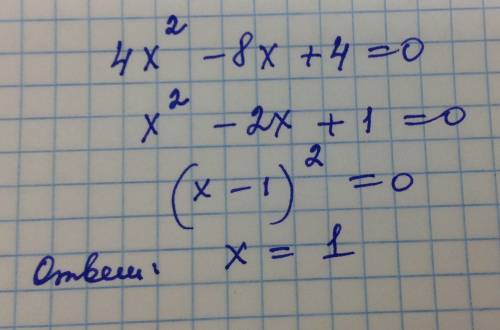 4x² - 8x + 4 = 0
x² - 2x + 1 = 0
(x - 1)² = 0
Ответ: x = 1